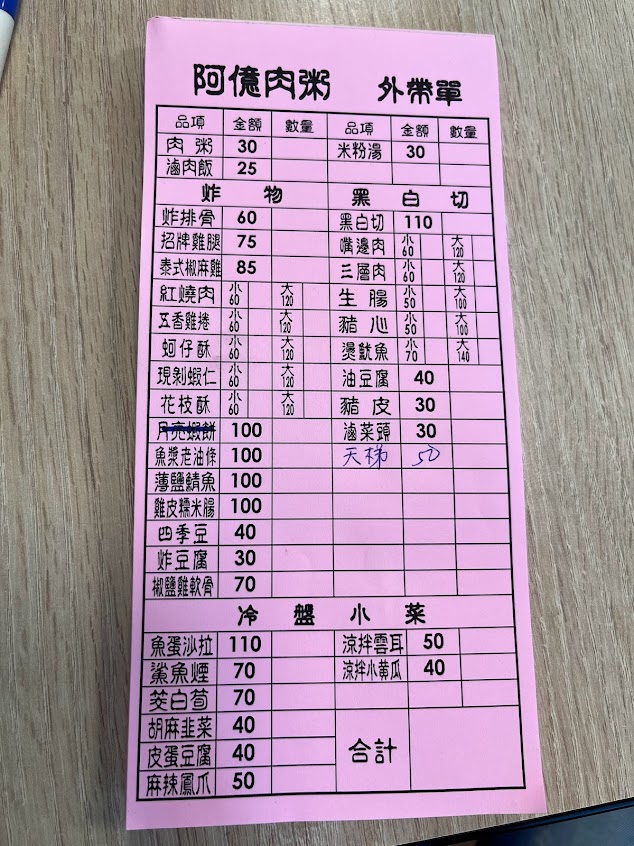 阿億肉粥 外帶單
品項 金額 數量 品項 金額 數量
肉粥 30 米粉湯 30
滷肉飯 25
炸物 黑白切
炸排骨 60 黑白切 110
招牌雞腿 75 嘴邊肉 小60 大120
泰式椒麻雞 85 三層肉 小60 大120
紅燒肉 小60 大120 生腸 小50 大100
五香雞捲 小60 大120 豬心 小50 大100
蚵仔酥 小60 大120 燙魷魚 小70 大140
現剝蝦仁 小60 大120 油豆腐 40
花枝酥 小60 大120 豬皮 30
月亮蝦餅 100 滷菜頭 30
魚漿老油條 100 天梯 50
薄鹽鯖魚 100
雞皮糯米腸 100
四季豆 40
炸豆腐 30
椒鹽雞軟骨 70
冷盤小菜
魚蛋沙拉 110 涼拌雲耳 50
鯊魚煙 70 涼拌小黃瓜 40
茭白荀 70
胡麻韭菜 40
皮蛋豆腐 40 合計
麻辣鳳爪 50